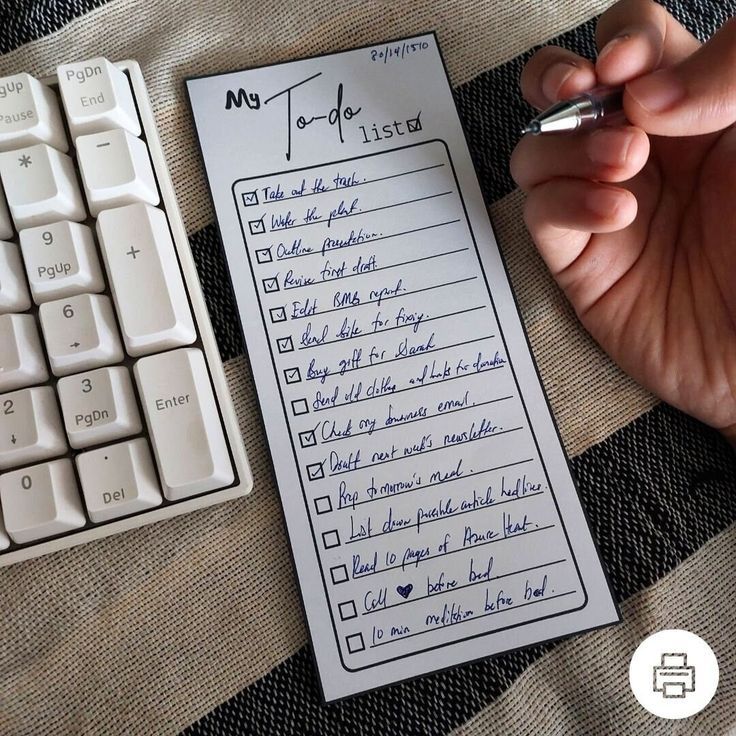 PgUp
Pause
PgDn
End
*
-
9
PgUp
+
6
3
PgDn
Enter
2
0
.
Del
My To-do list
Take out the trash.
Water the plant.
Outline presentation.
Revise first draft.
Edit report.
Send bike for fixing.
Buy gift for Sarah
Send old clothes and books for donation
Check my business email.
Draft next week's newsletter.
Prep tomorrow's meal.
List down possible article headlines.
Read 10 pages of Azure Heart.
Call ♥ before bed.
10 min meditation before bed.